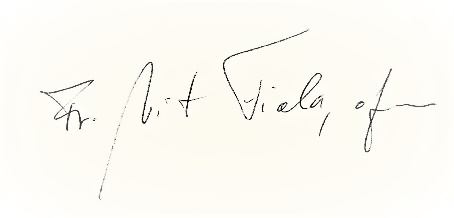 Fr. Vít Fiala, ofm